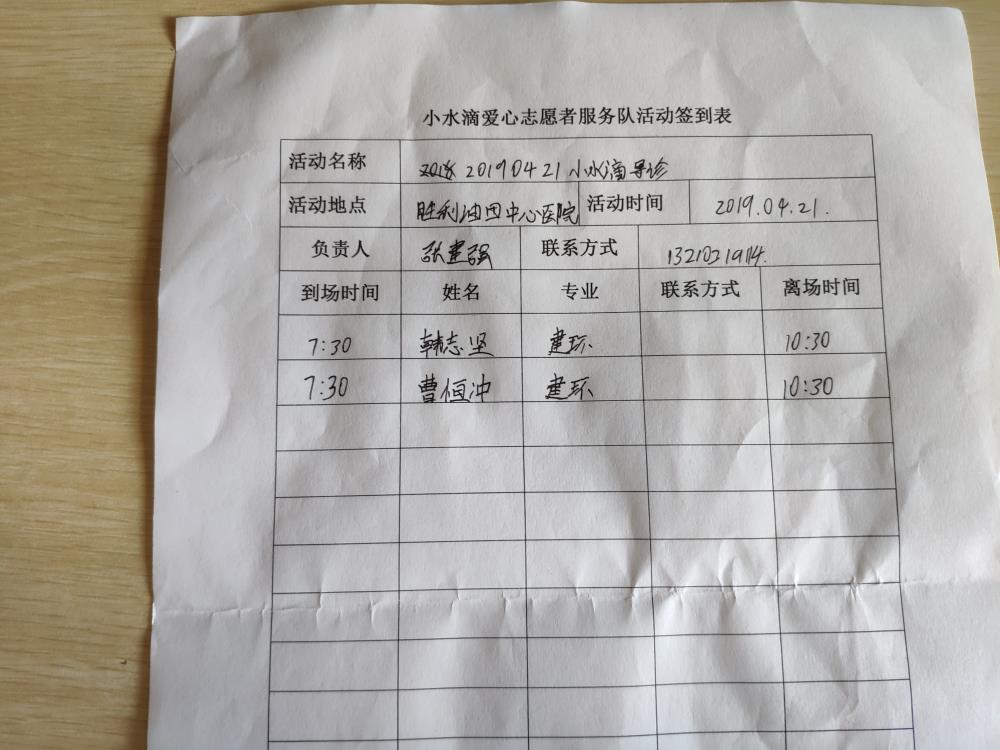 小水滴爱心志愿者服务队活动签到表
活动名称 20190421小水滴导诊
活动地点 胜利油田中心医院 活动时间 2019.04.21.
负责人 张建强 联系方式 13210219114.
到场时间 姓名 专业 联系方式 离场时间
7:30 韩志坚 建环 10:30
7:30 曹恒冲 建环 10:30